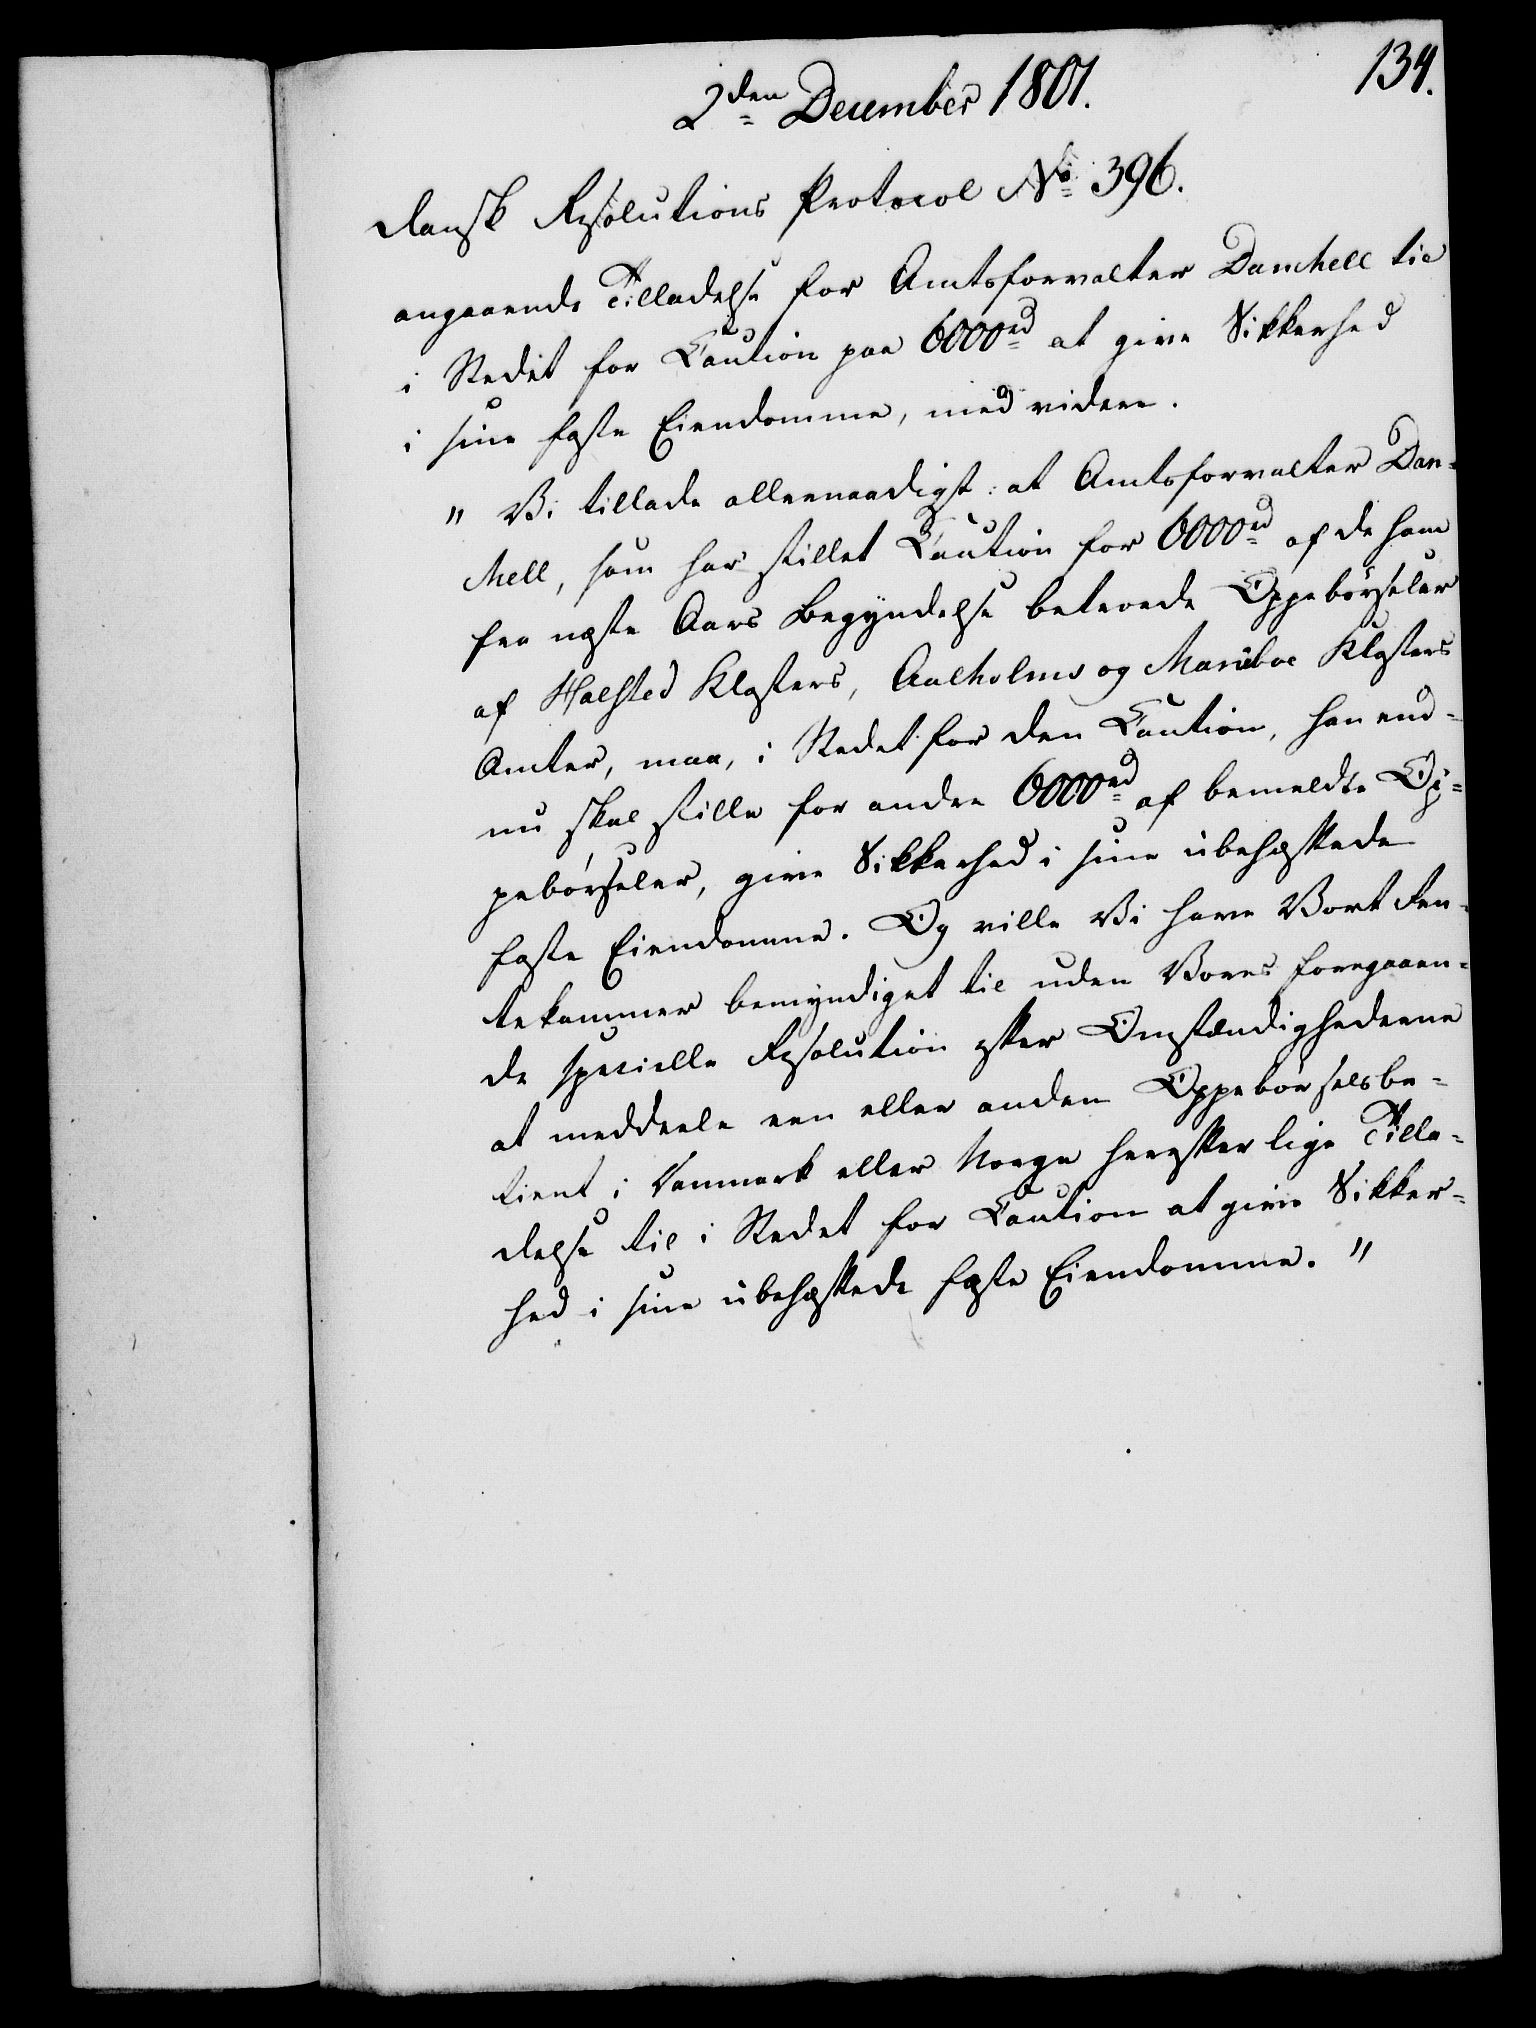 134.
2den December 1801.
Dansk Resolutions Protocol No 396.
angaaende Tilladelse for Amtsforvalter Danchell til
i Stedet for Caution paa 6000rd at give Sikkerhed
i sine faste Eiendomme, med videre.
" Vi tillade allernaadigst: at Amtsforvalter Dan-
chell, som har stillet Caution for 6000rd af de ham
fra næste Aars Begyndelse betroede Oppebørseler
af Halsted Klosters, Aalholms og Mariboe Klosters
Amter, maa, i Stedet for den Caution, han end-
nu skal stille for andre 6000rd af bemeldte Op-
pebørseler, give Sikkerhed i sine ubehæftede
faste Eiendomme. Og ville Vi have Vort Ren-
tekammer bemyndiget til uden Vores foregaaen-
de specielle Resolution efter Omstændighederne
at meddeele een eller anden Oppebørselsbe-
tient i Danmark eller Norge herefter lige Tilla-
delse til i Stedet for Caution at give Sikker-
hed i sine ubehæftede faste Eiendomme. "